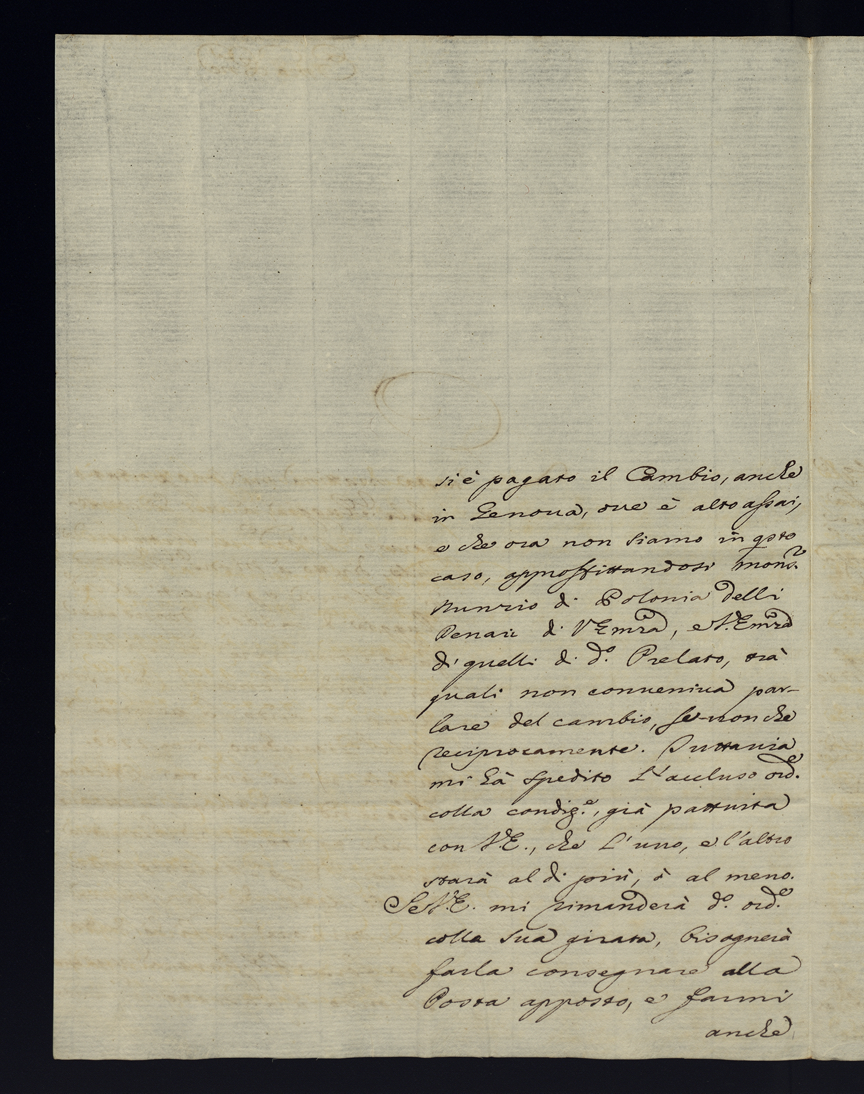 si è pagato il Cambio, anche
in Genova, ove è alto assai,
e che ora non siamo in qsto
caso, approfittandosi Monsr.
Nunzio di Polonia delli
Denari di V. Emza, e V. Emza
di quelli di do. Prelato, trà
quali non conveniva par-
lare del cambio, se non che
reciprocamente. Tuttavia
mi hà spedito l'accluso orde.
colla condize., già pattuita
con V.E., che l'uno, e l'altro
starà al di più, ò al meno.
Se V.E. mi rimanderà do. orde.
colla sua girata, bisognerà
farla consegnare alla
Posta apposto, e farmi
anche